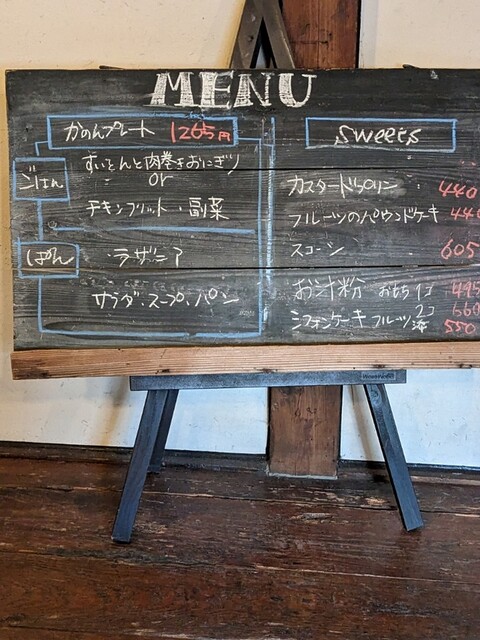 MENU
かのんプレート 1265円
ごはん
すいとんと肉巻きおにぎり
or
チキンフリット・副菜
ぱん
・ラザニア
サラダ・スープ・パン
sweets
カスタードプリン 440
フルーツのパウンドケーキ 440
スコーン 605
お汁粉 おもち 1コ 495
2コ 660
シフォンケーキ フルーツ添 550